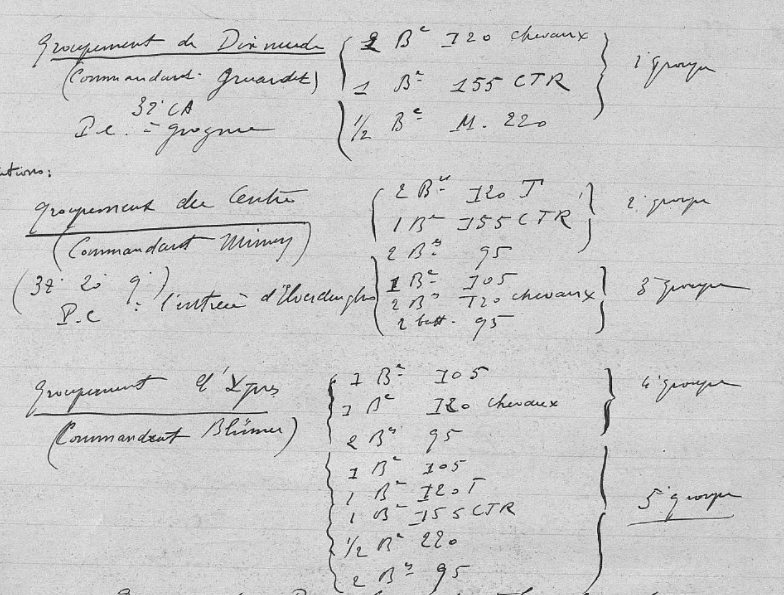 Groupement de Dixmude
2 Bies 120 chevaux
(Commandant
1 Bie 155 CTR
1er groupe
32e CA
P.C. =
1/2 Bie M. 220
Groupement du Centre
2 Bies 120 T
1 Bie 155 CTR
2e groupe
(Commandant
2 Bies 95
(32 20 9)
1 Bie 105
P.C : l'entrée d'
2 Bies 120 chevaux
3e groupe
2 batt. 95
Groupement d'Ypres
1 Bie 105
1 Bie 120 chevaux
4e groupe
(Commandant Blümer)
2 Bies 95
1 Bie 105
1 Bie 120 T
1 Bie 155 CTR
5e groupe
1/2 Bie 220
2 Bies 95